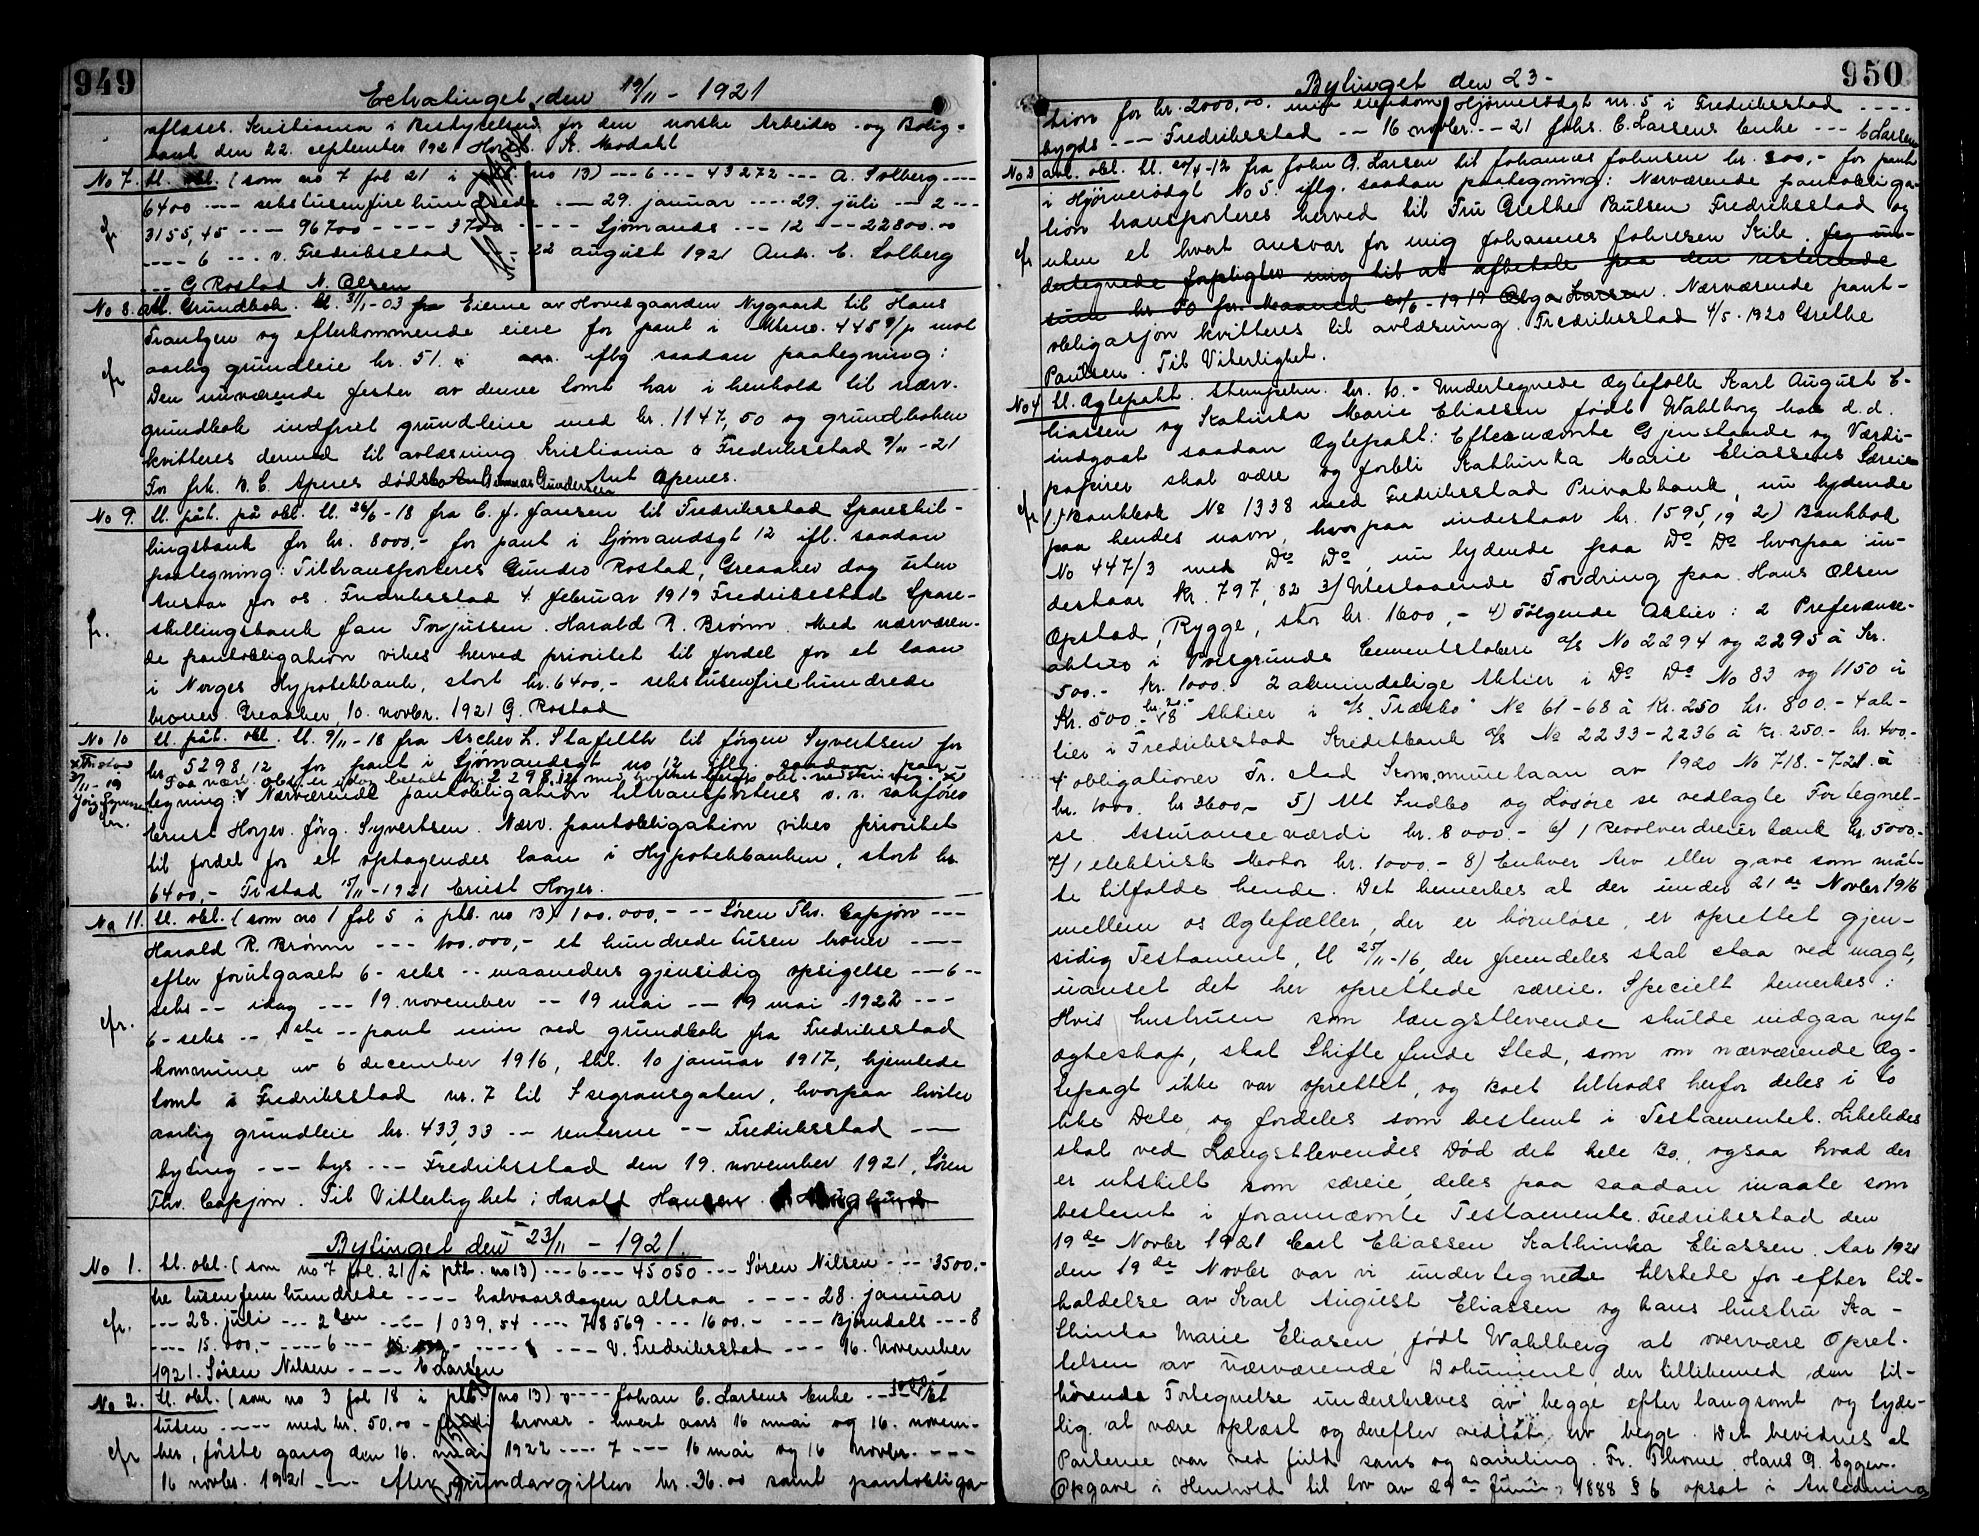 949
Extratinget den 19/11 - 1921
aflæses. Kristiania i Bestyrelsen for den norske Arbeider- og Bolig-
bank den 22. september 1921 K. Modahl
No 7. tl. obl. (som no 7 fol 21 i no 13) --- 6 --- 49272 --- A. Solberg ----
6400 ---- sekstusenfirehundrede --- 29. januar ---- 29. juli --- 2 ---
3155,45 --- 96700 ---- 37 ---- Sjømands --- 12 --- 22800.00
---- 6 --- v. Fredriksstad -- 22 august 1921 And. E. Solberg
--- G Rostad N. Olsen
No 8. avl. Grundbok. tl. 3/1-03 fra Eierne av Hovedgaarden Nygaard til Hans
Frantzen og efterkommende eiere for pant i Mtrno. 445 mot
aarlig grundleie kr. 51. iflg saadan paategning:
cfr
Den nuværende fester av denne tomt har i henhold til nærv.
grundbok indfriet grundleien med kr. 1147,50 og grundboken
kvitteres dermed til avlæsning Kristiania & Fredriksstad 9/11-21
For frk. B. C. Apenes dødsbo Gunnar Gundersen Ant Apenes.
No 9. tl. påt. på obl. tl. 26/6-18 fra C. J. Jansen til Fredriksstad Spareskil-
lingsbank for kr. 8000,- for pant i Sjømandsgt 12 ifl. saadan
paategning: Tiltransporteres Gunders Rostad, Greaaker dog uten
Ansvar for os. Fredriksstad 4. februar 1919 Fredriksstad Spare-
skillingsbank Jan Torjussen. Harald R. Brønn. Med nærværen-
de pantobligation vikes herved prioritet til fordel for et laan
i Norges Hypotekbank, stort kr. 6400,- sekstusenfirehundrede
kroner. Greaaker, 10. novbr. 1921 G. Rostad
No 10 tl. påt. obl. tl. 9/11-18 fra Ascher L. Stafeldt til Jørgen Syvertsen for
kr. 5298,12 for pant i Sjømandsgt no 12 iflg. saadan paa-
x Paa nærv. obl. er idag betalt kr. 2298.12 obl. nedskrivn.
tegning: Nærværende pantobligation tiltransporteres o.r. sakfører
Ernst Høyer. Jørg. Syvertsen. Nærv. pantobligation vikes prioritet
til fordel for et optagendes laan i Hypotekbanken, stort kr.
6400,- Fr.stad 15/11-1921 Ernst Høyer.
No 11. tl. obl. (som no 1 fol 5 i ptb. no 13) 100.000,- -- Søren Thv. Capjøn ---
Harald R. Brønn --- 100.000,- et hundrede tusen kroner ----
efter forutgaaet 6- seks -- maaneders gjensidig opsigelse --- 6 --
seks -- idag --- 19. november -- 19 mai -- 19 mai 1922 ---
cfr. 6- seks -- 1ste -- pant min ved grundbok fra Fredriksstad
kommune av 6 december 1916, tnl. 10 januar 1917, hjemlede
tomt i Fredriksstad nr. 7 til Isegransgaten, hvorpaa hviler
aarlig grundleie kr. 433,33 -- renterne -- Fredriksstad ---
byting --- bys --- Fredriksstad den 19. november 1921, Søren
Thv. Capjøn. Til Vitterlighet: Harald Hansen.
Bytinget den 23/11 - 1921
No 1. tl. obl. (som no 7 fol. 21 i ptb. no 13) --- 6 --- 45050 --- Søren Nilsen --- 3500,-
tre tusen fem hundrede ---- halvaarsdagen altsaa ---- 28. januar
cfr. --- 28. juli --- 2 den --- 1039,54 ---- 78569 --- 1600.- --- Bjørndals --- 8
---- 15.000,- ---- 6 --- V. Fredriksstad --- 16. November
1921. Søren Nilsen ---- E Larsen
No 2. tl. obl. (som no 3 fol 18 i ptb. no 13) ---- Johan C. Larsens Enke --- 1000 Et
tusen ---- med kr. 50,00 - kroner - hvert aars 16 mai og 16. novem-
cfr ber, første gang den 16. mai 1922 ---- 7 --- 16 mai og 16 novbr. ---
16 novbr. 1921 --- efter grundavgiften kr. 36.00 samt pantobliga-
950
Bytinget den 23-
tion for kr. 2000,00. min eiendom Hjørnerødgt nr. 5 i Fredriksstad ----
bygds --- Fredriksstad --- 16 novbr. -- 21 Johs. C. Larsens Enke --- E Larsen
No 3 avl. obl. tl. 20/4-12 fra John A. Larsen til Johannes Johnsen kr. 800,- for pant
i Hjørnerødgt No 5. iflg. saadan paategning: Nærværende pantobliga-
tion transporteres herved til Fru Grethe Paulsen Fredriksstad og
cfr uten et hvert ansvar for mig Johannes Johnsen Kile. Jeg un-
dertegnede forpligter mig til at afbetale paa den resterende
sum kr. 50 pr. Maaned 20/6 - 1919 Olga Larsen. Nærværende pant-
obligasjon kvitteres til avlæsning. Fredriksstad 4/5-1920 Grethe
Paulsen. Til Viterlighet.
No 4 tl. Ægtepakt. Stempelm. kr. 10.- Undertegnede Ægtefolk Karl August E-
liassen og Katinka Marie Eliassen født Wahlborg har d.d.
indgaat saadan Ægtepakt: Efternævnte Gjenstande og Værdi-
papirer skal være og forbli Kathinka Marie Eliassens Særeie
cfr 1) Bankbok No 1338 med Fredriksstad Privatbank, nu lydende
paa hendes navn, hvorpaa indestaar kr. 1595,19 2) Bankbok
No 447/3 med Do Do, nu lydende paa Do Do hvorpaa in-
destaar Kr. 797,82 3) Utestaaende Fordring paa Hans Olsen
Opstad, Rygge, stor kr. 1600,- 4) Følgende Aktier: 2 Preferanse-
aktier i Porsgrunds Cementstøberi A/S No 2294 og 2295 à Kr.
500.- kr. 1000.- 2 almindelige Aktier i Do Do No 83 og 1150 à
Kr. 500.- 8 Aktier i A/S "Træsko" No 61-68 à Kr. 250 kr. 800.- 4 ak-
tier i Fredriksstad Kreditbank A/S No 2233-2236 à Kr. 250.- kr. 400.-
4 obligationer Fr. stad Kommunelaan av 1920 No 718.-721 à
kr. 1000. kr 3600,- 5) Alt Indbo og Løsøre se vedlagte Fortegnel-
se Assuranceværdi kr. 8000.- 6) 1 Revolverdreierbænk kr. 5000.-
7) 1 elektrisk Motor kr. 1000.- 8) Enhver Arv eller gave som måt-
te tilfalde hende. Det bemerkes at der under 21de Novbr 1916
mellem os Ægtefæller, der er barnløse, er oprettet gjen-
sidig Testament, tl 25/11-16, der fremdeles skal staa ved magt,
uanset det her oprettede særeie. Specielt bemerkes:
Hvis hustruen som længstlevende skulde indgaa nyt
ægteskap, skal Skifte finde Sted, som om nærværende Æg-
tepagt ikke var oprettet, og Boet tiltrods herfor deles i to
like Dele, og fordeles som bestemt i Testamentet. Likeledes
skal ved Længstlevendes Død det hele Bo, ogsaa hvad der
er utskilt som særeie, deles paa saadan maate som
bestemt i forannævnte Testamente. Fredriksstad den
19de Novbr 1921 Carl Eliassen Kathinka Eliassen. Aar 1921
den 19de Novbr var vi undertegnede tilstede for efter til-
kaldelse av Karl August Eliassen og hans hustru Ka-
thinka Marie Eliasen, født Wahlberg at overvære Opret-
telsen av nærværende Dokument der tillikemed den til-
hørende Fortegnelse underskreves av begge efter langsomt og tyde-
lig at være oplæst og derefter vedtat av begge. Det bevidnes at
Parterne var ved fuld sans og samling. Fr. Thorne. Hans A. Eggen.
Opgave i Henhold til lov av 29de Juni 1888 § 6 opsat i Anledning